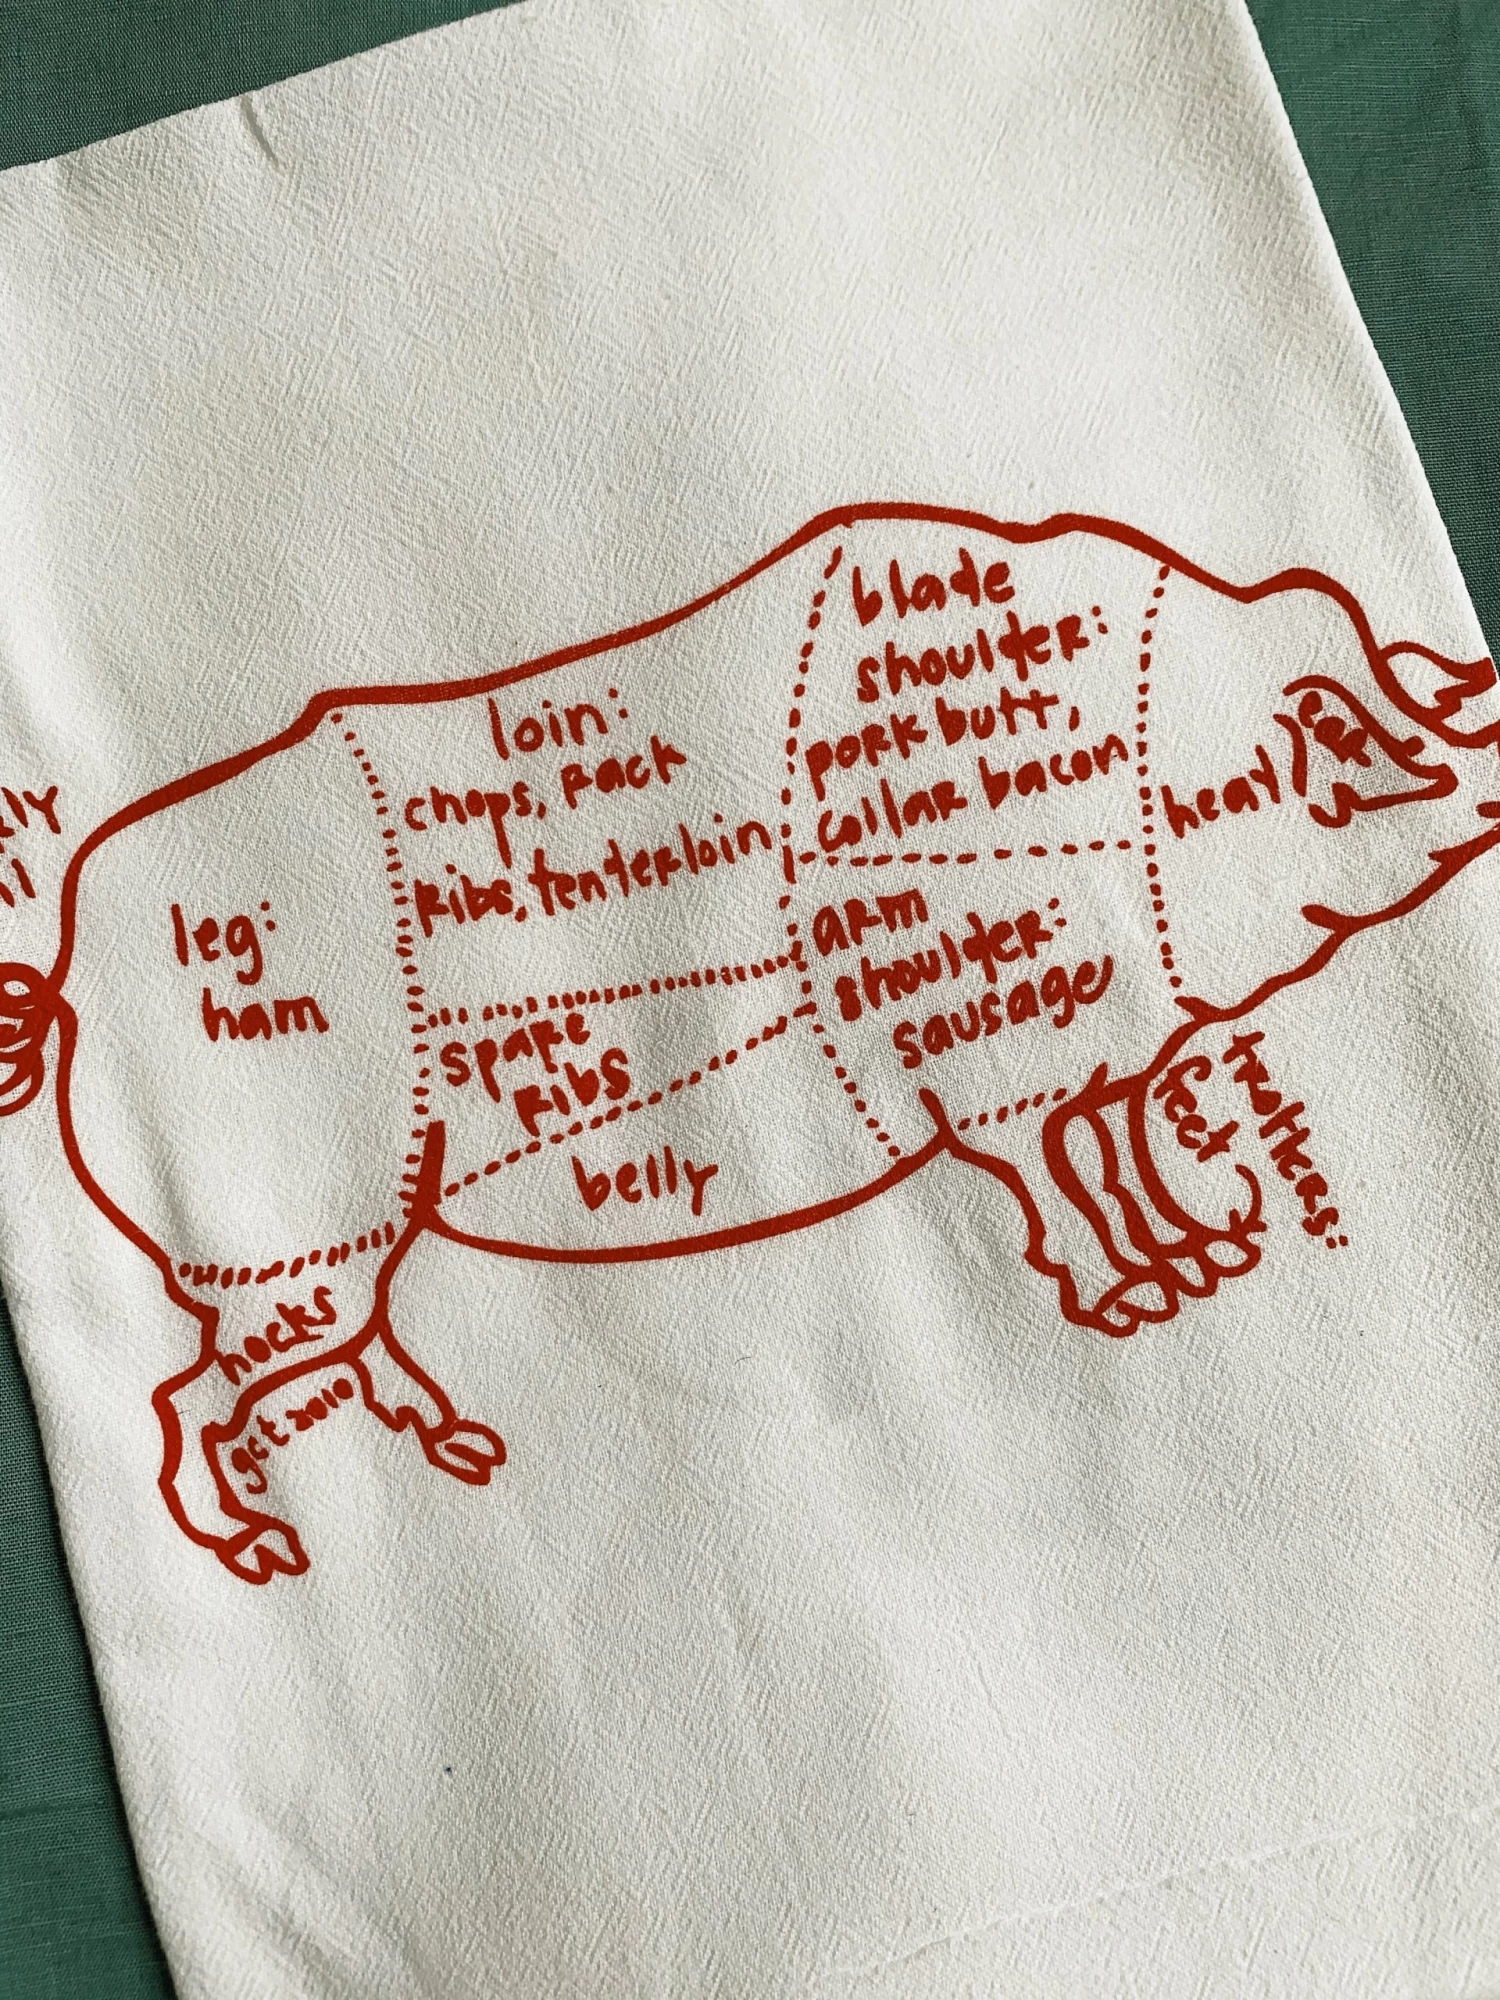 blade
shoulder:
pork butt,
collar bacon
loin:
chops, rack
ribs, tenderloin
ear
head
leg:
ham
arm
shoulder:
sausage
spare
ribs
belly
trotters:
feet
hocks
gct 2010